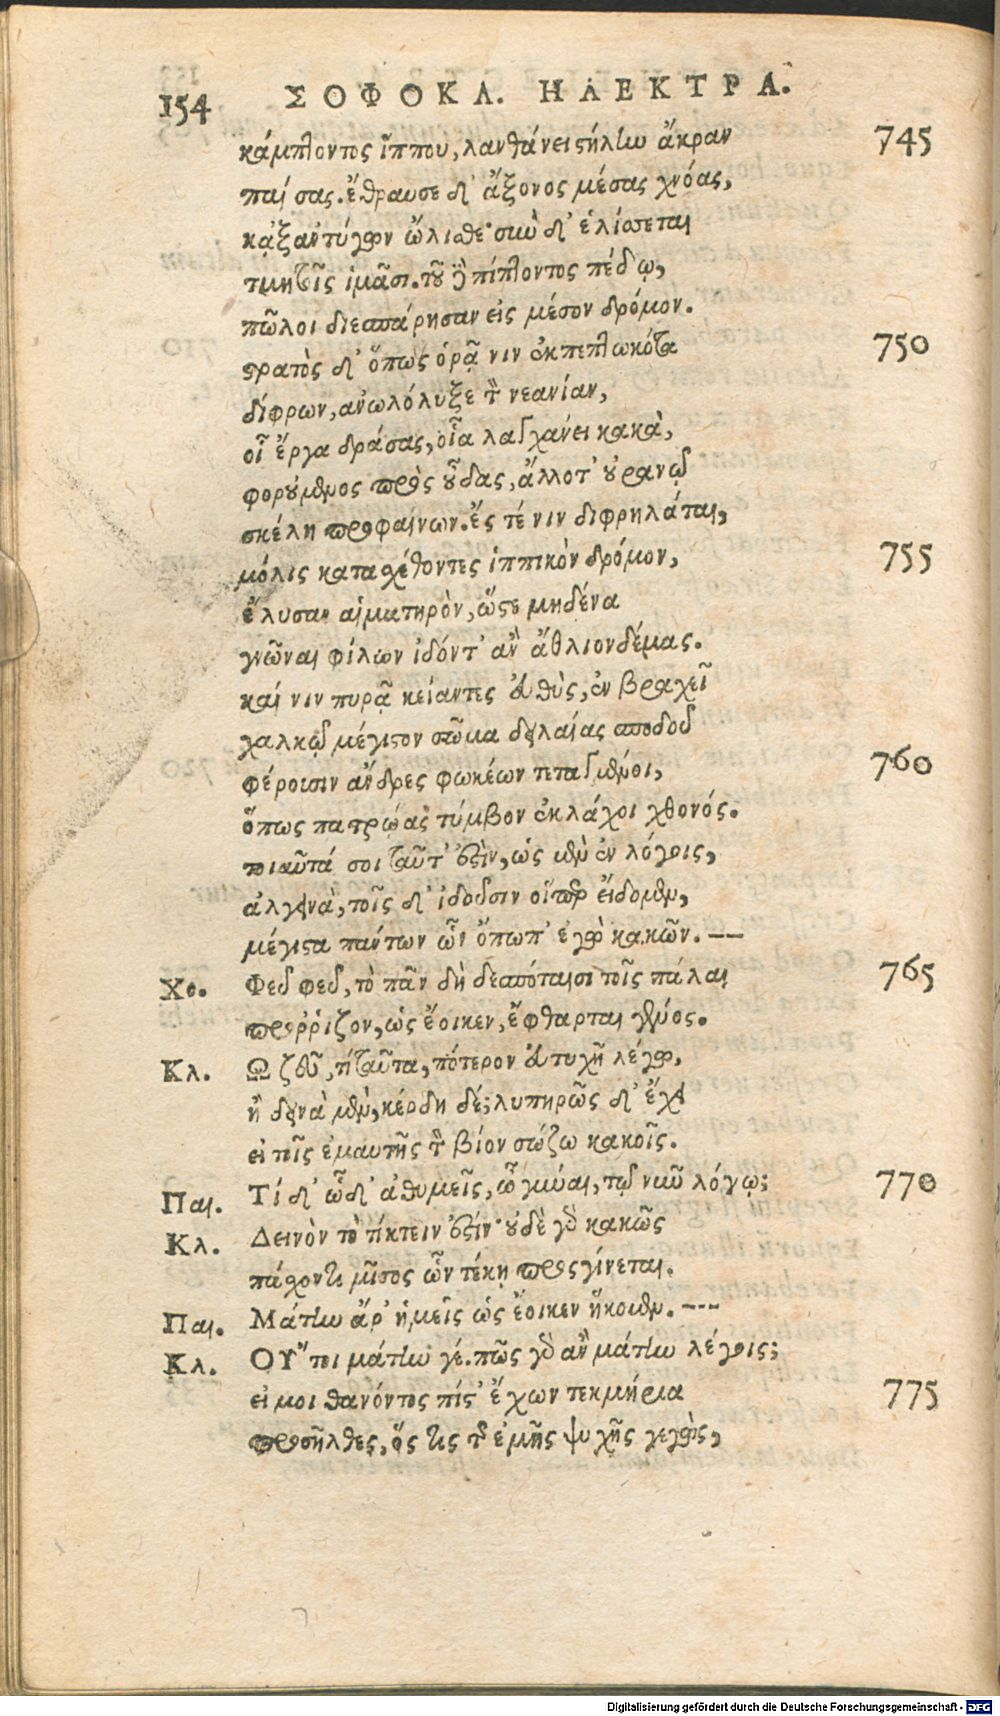 154 ΣΟΦΟΚΛ. ΗΛΕΚΤΡΑ.
κάμπτοντος ἵππου, λανθάνει στήλην ἄκραν 745
παίσας. ἔθραυσε δ' ἄξονος μέσας χνόας,
κᾀξ ἀντύγων ὤλισθε· σὺν δ' ἑλίσσεται
τμητοῖς ἱμᾶσι. τοῦ δὲ πίπτοντος πέδῳ,
πῶλοι διεσπάρησαν εἰς μέσον δρόμον.
στρατὸς δ' ὅπως ὁρᾷ νιν ἐκπεπτωκότα 750
δίφρων, ἀνωλόλυξε τὸν νεανίαν,
οἷ' ἔργα δράσας, οἷα λαγχάνει κακὰ,
φορούμενος πρὸς οὖδας, ἄλλοτ' οὐρανῷ
σκέλη προφαίνων. ἔς τέ νιν διφρηλάται,
μόλις κατασχέθοντες ἱππικὸν δρόμον, 755
ἔλυσαν αἱματηρὸν, ὥστε μηδένα
γνῶναι φίλων ἰδόντ' ἂν ἄθλιον δέμας.
καί νιν πυρᾷ κείαντες εὐθὺς, ἐν βραχεῖ
χαλκῷ μέγιστον σῶμα δειλαίας σποδοῦ
φέρουσιν ἄνδρες φωκέων τεταγμένοι, 760
ὅπως πατρῴας τύμβον ἐκλάχοι χθονός.
τοιαῦτά σοι ταῦτ' ἐστὶν, ὡς μὲν ἐν λόγοις,
ἀλγεινὰ, τοῖς δ' ἰδοῦσιν οἵπερ εἴδομεν,
μέγιστα πάντων ὧν ὄπωπ' ἐγὼ κακῶν. ——
Χο. Φεῦ φεῦ, τὸ πᾶν δὴ δεσπόταισι τοῖς πάλαι 765
πρόρριζον, ὡς ἔοικεν, ἔφθαρται γένος.
Κλ. Ω ζεῦ, τί ταῦτα, πότερον εὐτυχῆ λέγω,
ἢ δεινὰ μὲν, κέρδη δέ; λυπηρῶς δ' ἔχει
εἰ τοῖς ἐμαυτῆς τὸν βίον σώζω κακοῖς.
Παι. Τί δ' ὧδ' ἀθυμεῖς, ὦ γύναι, τῷ νῦν λόγῳ; 770
Κλ. Δεινὸν τὸ τίκτειν ἐστίν· οὐδὲ γὰρ κακῶς
πάσχοντι μῖσος ὧν τέκῃ προσγίνεται.
Παι. Μάτην ἄρ' ἡμεῖς ὡς ἔοικεν ἥκομεν. ---
Κλ. ΟΥ῎τοι μάτην γέ. πῶς γὰρ ἂν μάτην λέγοις;
εἰ μοι θανόντος πίστ' ἔχων τεκμήρια 775
προσῆλθες, ὅς τις τῆς ἐμῆς ψυχῆς γεγὼς,
Digitalisierung gefördert durch die Deutsche Forschungsgemeinschaft - DFG